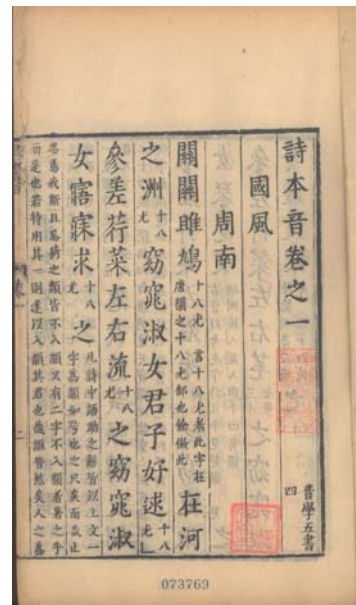 詩本音卷之一
音學五書
四
國風
周南
關關雎鳩十八尤 言十八尤者此字在唐韻之十八尤部也餘倣此在河
之洲十八尤窈窕淑女君子好逑十八尤
參差荇菜左右流十八尤之窈窕淑
女寤寐求十八尤之凡詩中語助之辭皆以上文一字為韻如兮也之只矣而哉止
思焉我斯且忌猗之類皆不入韻又有二字不入韻者著之乎
而是也若特用其一則遂以入韻其君也哉誰昔然矣人之為
073769